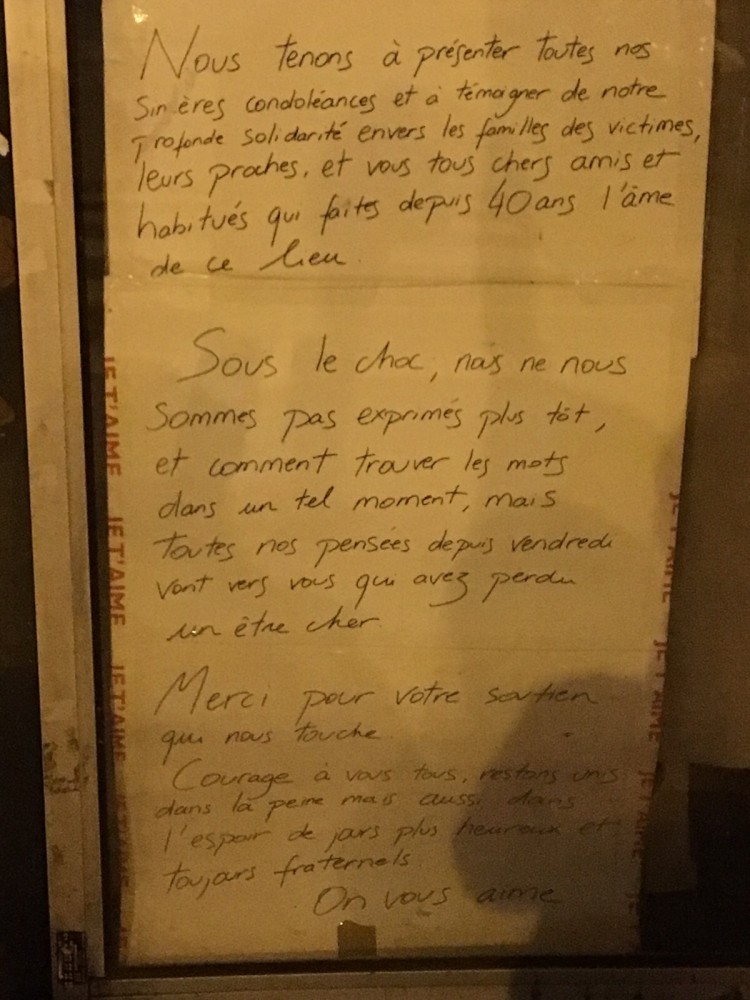 Nous tenons à présenter toutes nos
sincères condoléances et à témoigner de notre
profonde solidarité envers les familles des victimes,
leurs proches, et vous tous chers amis et
habitués qui faites depuis 40 ans l'âme
de ce lieu.
Sous le choc, nous ne nous
sommes pas exprimés plus tôt,
et comment trouver les mots
dans un tel moment, mais
toutes nos pensées depuis vendredi
vont vers vous qui avez perdu
un être cher.
Merci pour votre soutien
qui nous touche.
Courage à vous tous, restons unis
dans la peine mais aussi dans
l'espoir de jours plus heureux et
toujours fraternels.
On vous aime
JE T'AIME JE T'AIME JE T'AIME
JE T'AIME JE T'AIME JE T'AIME